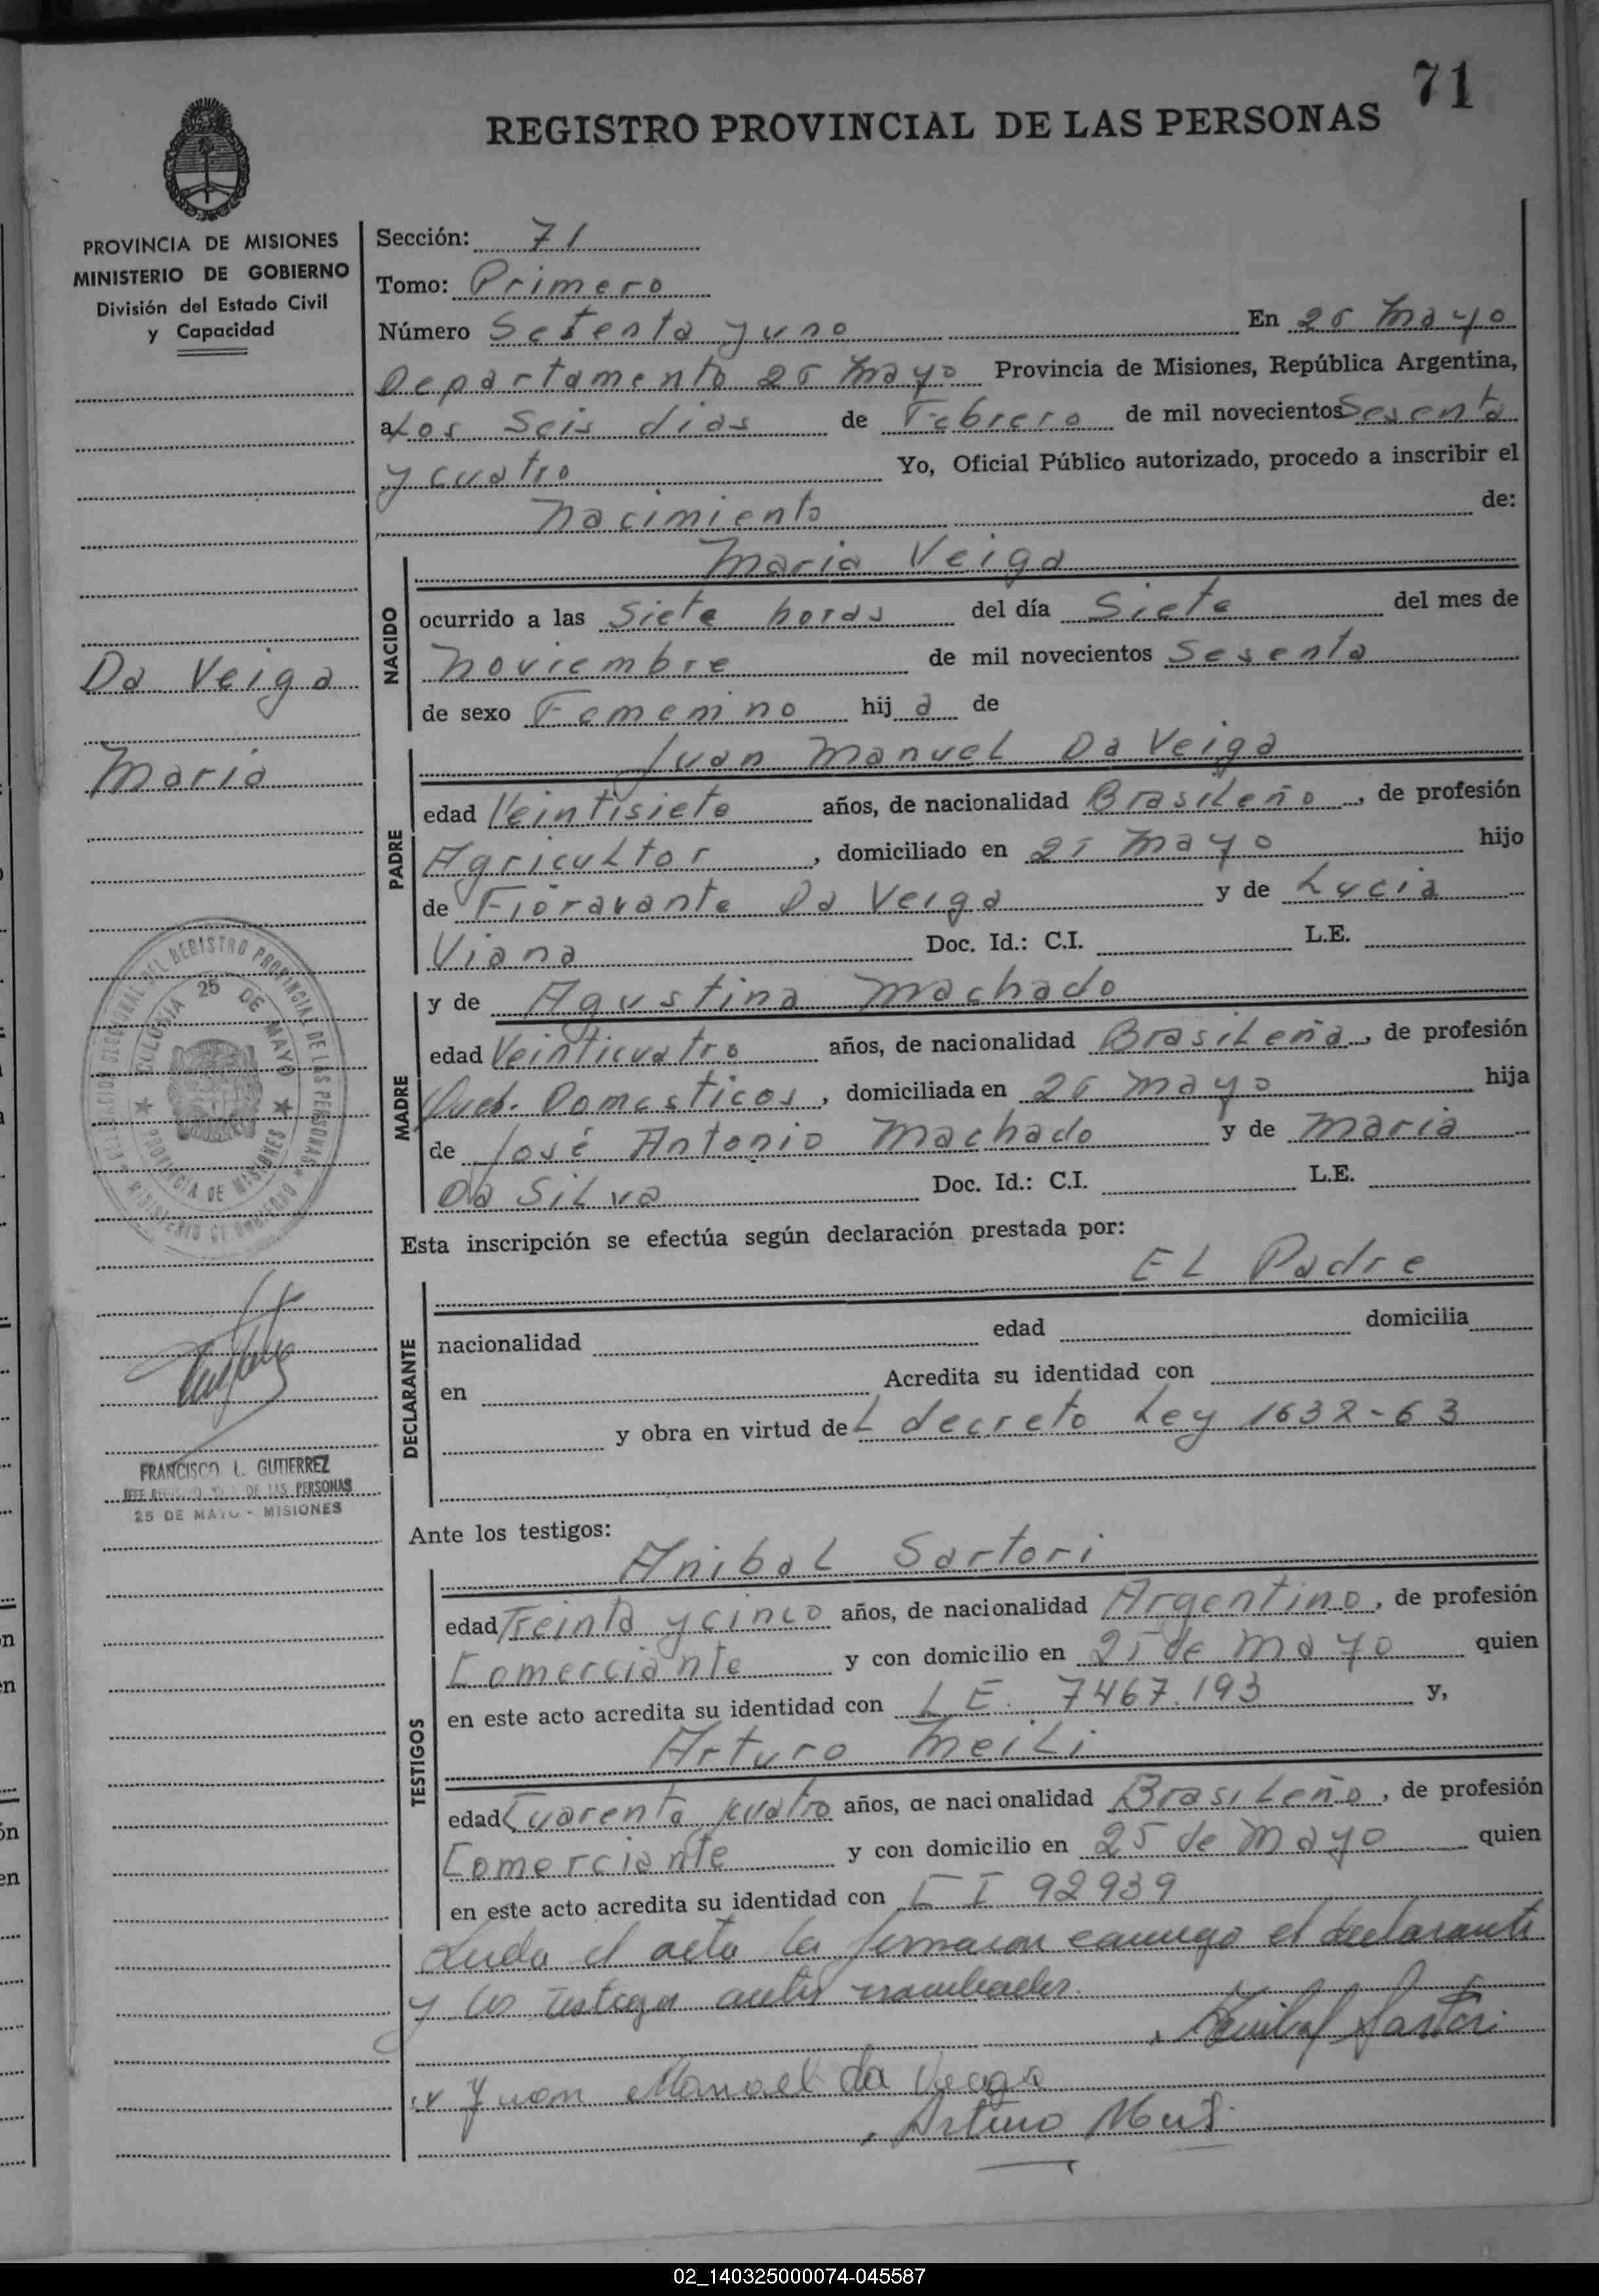 71
REGISTRO PROVINCIAL DE LAS PERSONAS
PROVINCIA DE MISIONES
MINISTERIO DE GOBIERNO
División del Estado Civil
y Capacidad
Sección: 71
Tomo: Primero
Número Setenta y uno En 25 Mayo
Departamento 25 Mayo Provincia de Misiones, República Argentina,
a Los Seis dias de Febrero de mil novecientos Sesenta
y cuatro Yo, Oficial Público autorizado, procedo a inscribir el
Nacimiento de:
Maria Veiga
NACIDO
ocurrido a las Siete horas del día Siete del mes de
Noviembre de mil novecientos Sesenta
de sexo Femenino hij a de
Da Veiga
Maria
Juan Manuel Da Veiga
PADRE
edad Veintisiete años, de nacionalidad Brasileño, de profesión
Agricultor, domiciliado en 25 Mayo hijo
de Fioravante Da Veiga y de Lucia
Viana Doc. Id.: C.I. L.E.
y de Agustina Machado
MADRE
edad Veinticuatro años, de nacionalidad Brasileña, de profesión
Queh. Domesticos, domiciliada en 25 Mayo hija
de José Antonio Machado y de Maria
Da Silva Doc. Id.: C.I. L.E.
DEL REGISTRO PROVINCIAL DE LAS PERSONAS
COLONIA 25 DE MAYO
PROVINCIA DE MISIONES
MINISTERIO DE GOBIERNO
Esta inscripción se efectúa según declaración prestada por:
EL Padre
DECLARANTE
nacionalidad edad domicilia
en Acredita su identidad con
y obra en virtud de L decreto Ley 1632-63
FRANCISCO L. GUTIERREZ
JEFE DE LAS PERSONAS
25 DE MAYO - MISIONES
Ante los testigos:
Anibal Sartori
TESTIGOS
edad Treinta y cinco años, de nacionalidad Argentino, de profesión
Comerciante y con domicilio en 25 de Mayo quien
en este acto acredita su identidad con L E. 7467.193 y,
Arturo Meili
edad Cuarenta y cuatro años, de nacionalidad Brasileño, de profesión
Comerciante y con domicilio en 25 de Mayo quien
en este acto acredita su identidad con C I 92939
Leida el acta la firmaron conmigo el declarante
y los testigos antes nombrados.
Anibal Sartori
Juan Manoel da Veiga
Arturo Meili
02_140325000074-045587